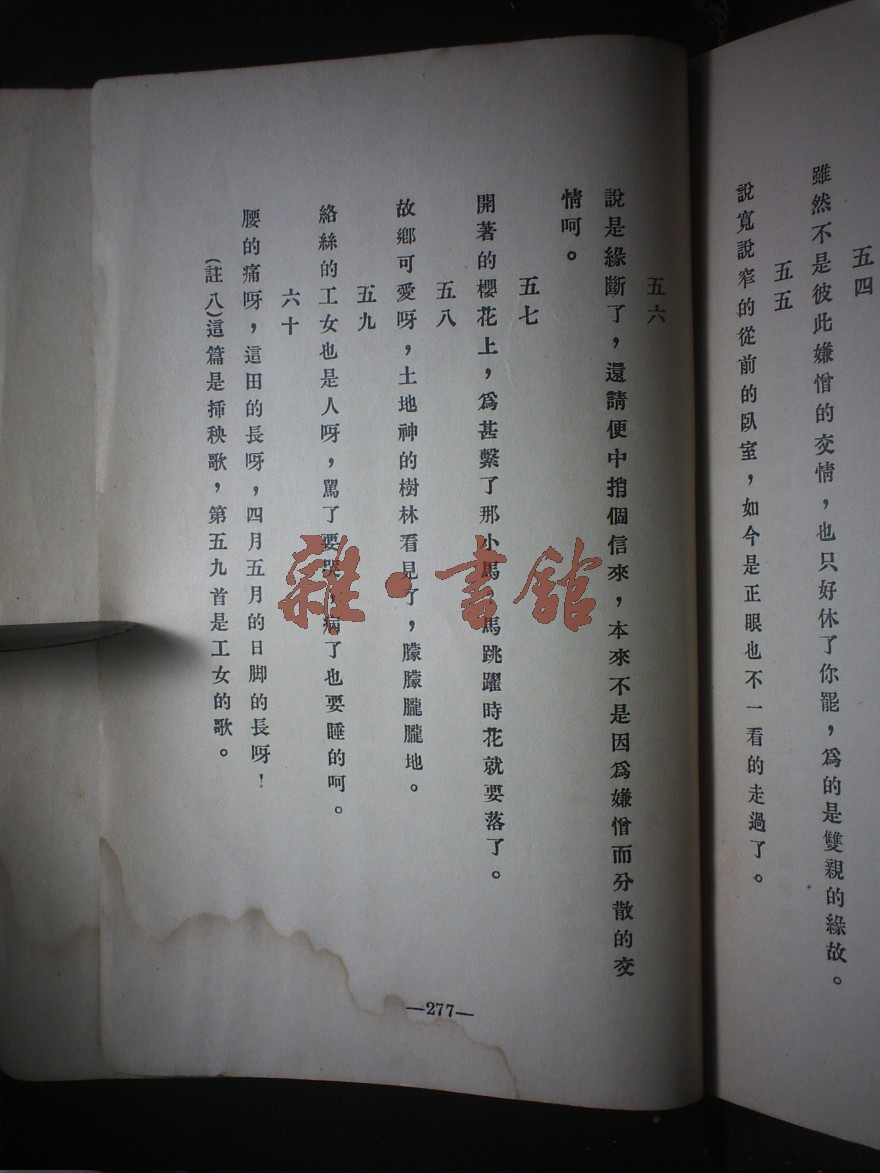 五四
雖然不是彼此嫌憎的交情，也只好休了你罷，為的是雙親的緣故。
五五
說寬說窄的從前的臥室，如今是正眼也不一看的走過了。
五六
說是緣斷了，還請便中捎個信來，本來不是因為嫌憎而分散的交
情呵。
五七
開著的櫻花上，為甚繫了那小馬，馬跳躍時花就要落了。
五八
故鄉可愛呀，土地神的樹林看見了，朦朦朧朧地。
五九
絡絲的工女也是人呀，罵了要哭，病了也要睡的呵。
六十
腰的痛呀，這田的長呀，四月五月的日脚的長呀！
（註八）這篇是揷秧歌，第五九首是工女的歌。
—277—
雜·書館